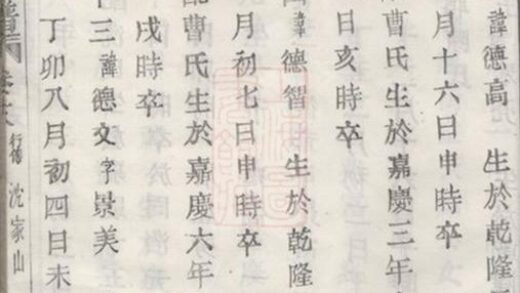 諱德高 生於乾隆
月十六日申時卒
曹氏生於嘉慶三年
日亥時卒
諱德智 生於乾隆
月初七日申時卒
曹氏生於嘉慶六年
戌時卒
十三諱德文字景美
丁卯八月初四日未
行傳 沈家山